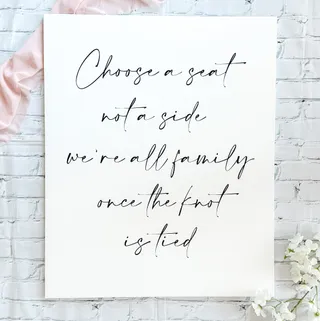 Choose a seat
not a side
we're all family
once the knot
is tied